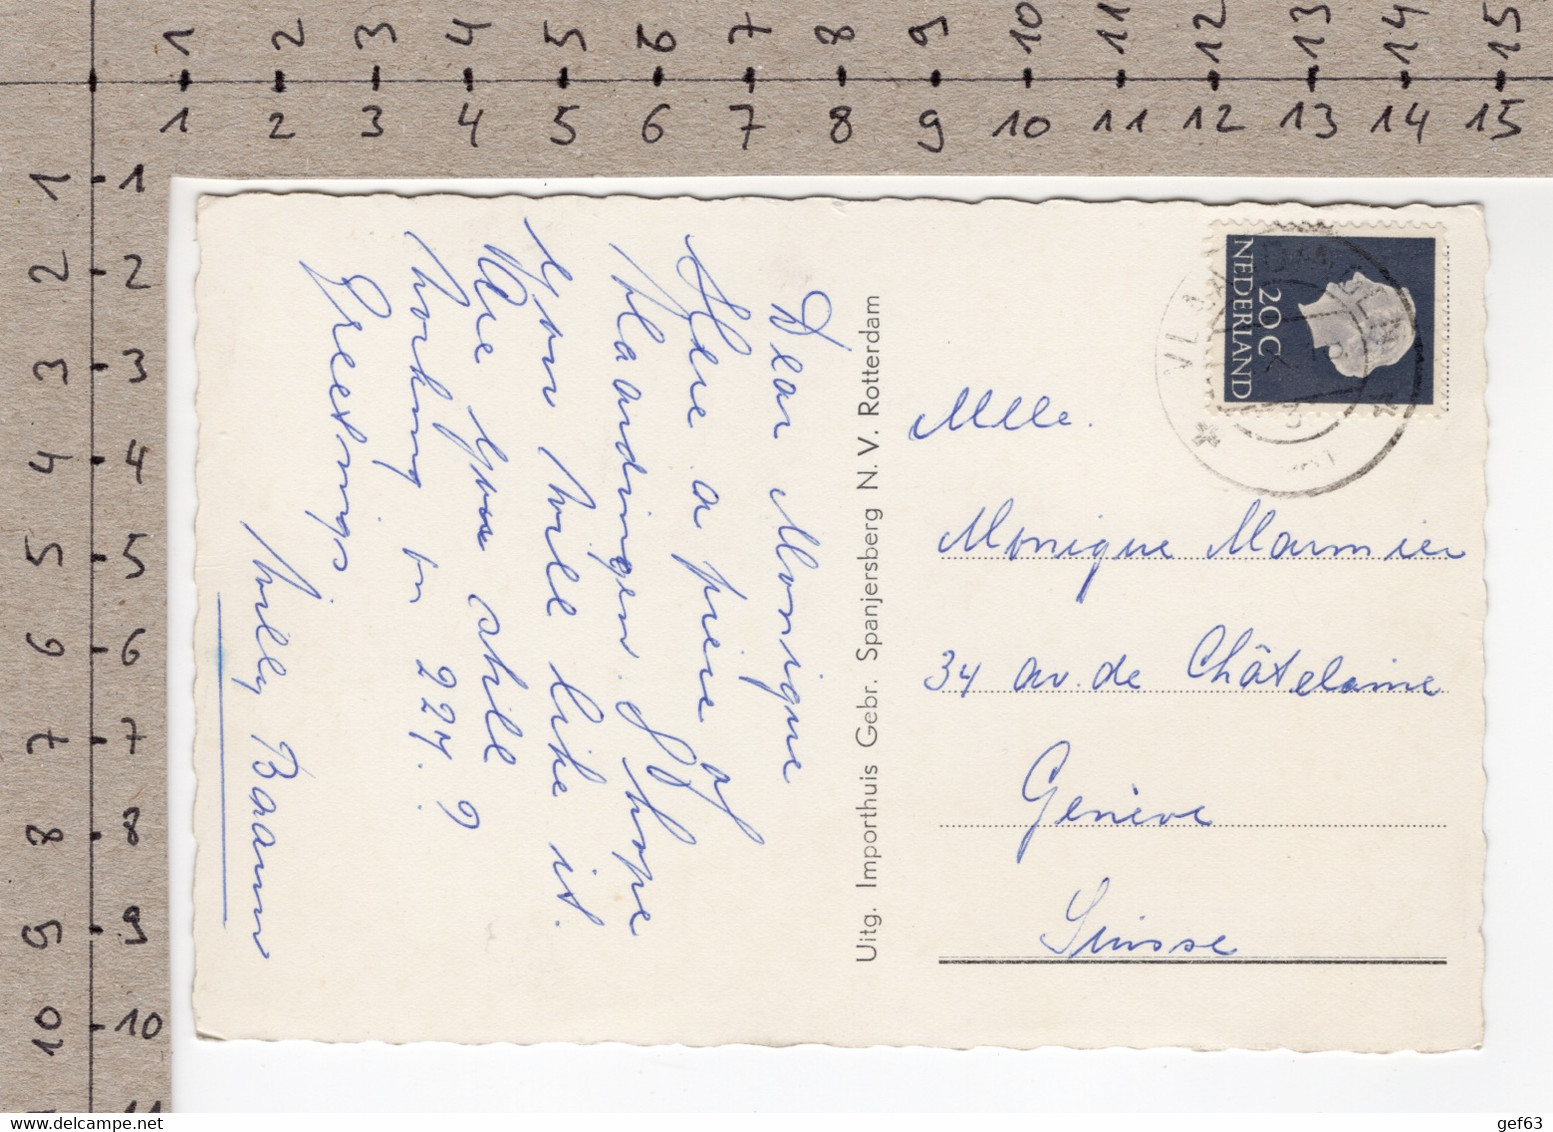 1 2 3 4 5 6 7 8 9 10 11 12 13 14 15
1 2 3 4 5 6 7 8 9 10 11 12 13 14 15
1 1
2 2
3 3
4 4
5 5
6 6
7 7
8 8
9 9
10 10
11
Dear Monique
Here a piece of
Vlaardingen. I hope
you will like it.
Are you still
working in 224.?
Greetings
Willy Baaren
Uitg. Importhuis Gebr. Spanjersberg N. V. Rotterdam
NEDERLAND
20 C
VLAARDINGEN
Mlle.
Monique Marmier
34 av. de Châtelaine
Genève
Suisse
gef63